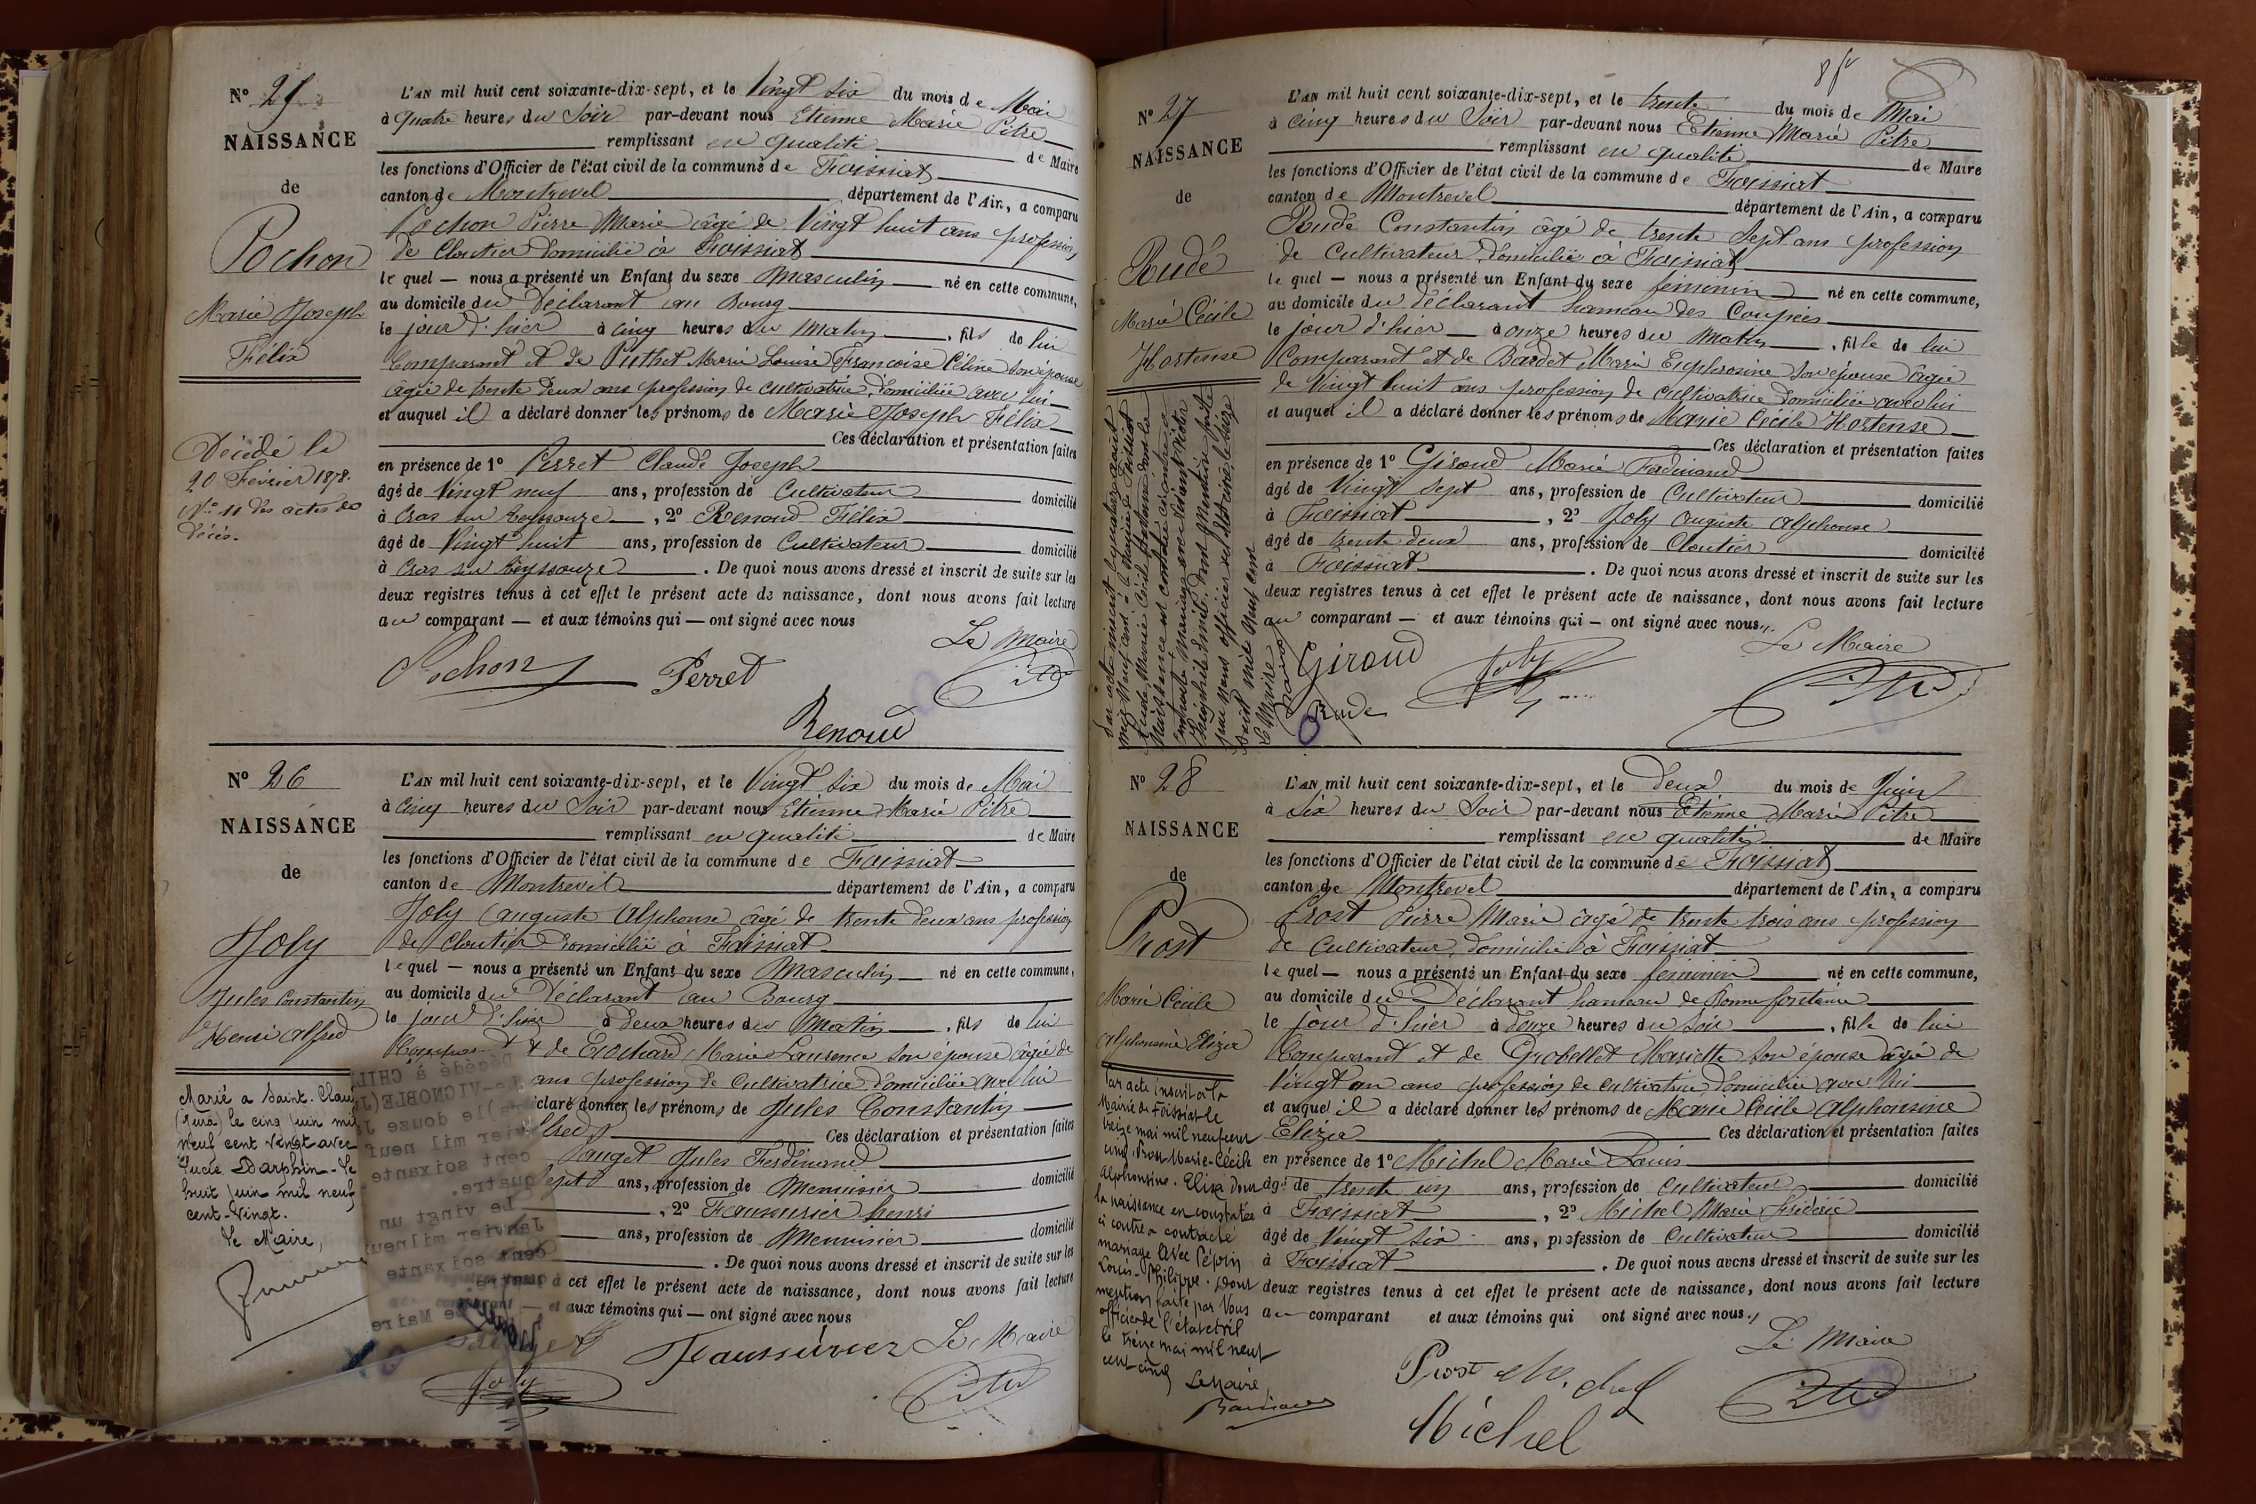 N° 25
NAISSANCE
de
Pochon
Marie Joseph
Félix
Décédé le
20 Février 1878.
N° 11 des actes de
décès.
L'AN mil huit cent soixante-dix-sept, et le Vingt six du mois de Mai
à quatre heures du Soir par-devant nous Etienne Marie Pitre
remplissant en qualité de Maire
les fonctions d'Officier de l'état civil de la commune de Foissiat
canton de Montrevel département de l'Ain, a comparu
Pochon Pierre Marie âgé de Vingt huit ans profession
de Cloutier domicilié à Foissiat
le quel — nous a présenté un Enfant du sexe Masculin né en cette commune,
au domicile du Déclarant au Bourg
le jour d'hier à cinq heures du Matin, fils de lui
Comparant et de Puthet Marie Louise Françoise Céline son épouse
âgée de trente deux ans profession de cultivatrice domiciliée avec lui
et auquel il a déclaré donner les prénoms de Marie Joseph Félix
Ces déclaration et présentation faites
en présence de 1° Perret Claude Joseph
âgé de Vingt neuf ans, profession de Cultivateur domicilié
à Cras sur Reyssouze, 2° Renoud Félix
âgé de Vingt huit ans, profession de Cultivateur domicilié
à Cras sur Reyssouze. De quoi nous avons dressé et inscrit de suite sur les
deux registres tenus à cet effet le présent acte de naissance, dont nous avons fait lecture
au comparant — et aux témoins qui — ont signé avec nous
Le Maire
Pochon Perret Pitre
Renoud
N° 26
NAISSANCE
de
Joly
Jules Constantin
Henri Alfred
Marié a Saint-Claude
(Jura) le cinq juin mil
neuf cent vingt avec
Lucie Darphin - Le
huit juin mil neuf
cent-vingt.
Le Maire,
L'AN mil huit cent soixante-dix-sept, et le Vingt six du mois de Mai
à cinq heures du Soir par-devant nous Etienne Marie Pitre
remplissant en qualité de Maire
les fonctions d'Officier de l'état civil de la commune de Foissiat
canton de Montrevel département de l'Ain, a comparu
Joly Auguste Alphonse âgé de trente deux ans profession
de Cloutier domicilié à Foissiat
le quel — nous a présenté un Enfant du sexe Masculin né en cette commune,
au domicile du Déclarant au Bourg
le jour d'hier à deux heures du Matin, fils de lui
Comparant et de Erochard Marie Laurence son épouse âgée de
ans profession de Cultivatrice domiciliée avec lui
claré donner les prénoms de Jules Constantin
Ces déclaration et présentation faites
Jules Ferdinand
ans, profession de Menuisier domicilié
, 2° Faussurier henri
ans, profession de Menuisier domicilié
. De quoi nous avons dressé et inscrit de suite sur les
à cet effet le présent acte de naissance, dont nous avons fait lecture
— et aux témoins qui — ont signé avec nous
Décédé à CHI
Le-VIGNOBLE(J
le douze J
vier mil neuf
cent soixante
quatre.
Le vingt un
Janvier mil neuf
cent soixante
quatre.
Le Maire
Faussurier Le Maire
Joly Pitre
8
N° 27
NAISSANCE
de
Rude
Marie Cécile
Hortense
L'AN mil huit cent soixante-dix-sept, et le trente du mois de Mai
à cinq heures du Soir par-devant nous Etienne Marie Pitre
remplissant en qualité de Maire
les fonctions d'Officier de l'état civil de la commune de Foissiat
canton de Montrevel département de l'Ain, a comparu
Rude Constantin âgé de trente Sept ans profession
de Cultivateur domicilié à Foissiat
le quel — nous a présenté un Enfant du sexe féminin né en cette commune,
au domicile du déclarant hameau des Coupées
le jour d'hier à onze heures du Matin, fille de lui
Comparant et de Bardet Marie Euphrosine son épouse âgée
de Vingt huit ans profession de cultivatrice domiciliée avec lui
et auquel il a déclaré donner les prénoms de Marie Cécile Hortense
Ces déclaration et présentation faites
en présence de 1° Giroud Marie Ferdinand
âgé de Vingt Sept ans, profession de Cultivateur domicilié
à Foissiat, 2° Joly Auguste Alphonse
âgé de trente deux ans, profession de Cloutier domicilié
à Foissiat. De quoi nous avons dressé et inscrit de suite sur les
deux registres tenus à cet effet le présent acte de naissance, dont nous avons fait lecture
au comparant — et aux témoins qui — ont signé avec nous.
Le Maire
Giroud Joly Pitre
Rude
N° 28
NAISSANCE
de
Prost
Marie Cécile
Alphonsine Eliza
Par acte inscrit à la
Mairie de Foissiat le
treize mai mil neuf cent
cinq. Prost Marie-Cécile
Alphonsine. Eliza dont
la naissance est constatée
ci contre a contracté
mariage avec Pépin
Louis-Philippe. pour
mention faite par Nous
officier de l'état civil
le treize mai mil neuf
cent cinq
Le Maire,
L'AN mil huit cent soixante-dix-sept, et le deux du mois de Juin
à Six heures du Soir par-devant nous Etienne Marie Pitre
remplissant en qualité de Maire
les fonctions d'Officier de l'état civil de la commune de Foissiat
canton de Montrevel département de l'Ain, a comparu
Prost Pierre Marie âgé de trente trois ans profession
de Cultivateur domicilié à Foissiat
le quel — nous a présenté un Enfant du sexe féminin né en cette commune,
au domicile du Déclarant hameau de Bonne fontaine
le jour d'hier à douze heures du Soir, fille de lui
Comparant et de Grobellet Mariette son épouse âgée de
Vingt un ans profession de cultivatrice domiciliée avec lui
et auquel il a déclaré donner les prénoms de Marie Cécile Alphonsine
Eliza Ces déclaration et présentation faites
en présence de 1° Michel Marie Louis
âgé de trente un ans, profession de Cultivateur domicilié
à Foissiat, 2° Michel Marie Fréderic
âgé de Vingt six ans, profession de Cultivateur domicilié
à Foissiat. De quoi nous avons dressé et inscrit de suite sur les
deux registres tenus à cet effet le présent acte de naissance, dont nous avons fait lecture
au comparant et aux témoins qui ont signé avec nous.
Le Maire
Prost Michel Pitre
Michel